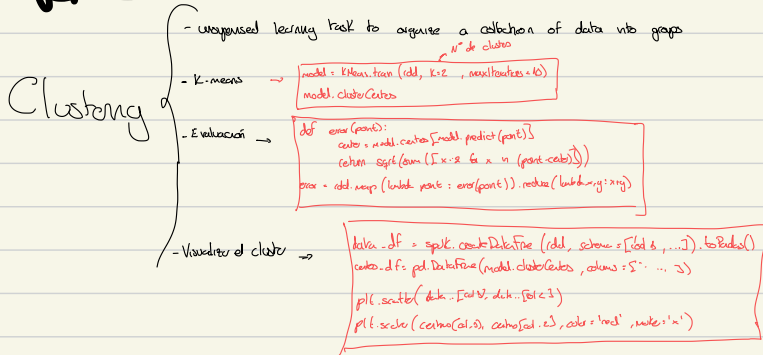 Clustering
- unsupervised learning task to organise a collection of data into groups
Nº de clusters
- K-means → model = KMeans.train (rdd, K=2 , maxIterations=10)
model.clusterCenters
- Evaluación → def error(point):
center = model.centers[model.predict(point)]
return sqrt(sum([x**2 for x in (point-center)]))
error = rdd.map (lambda point : error(point)).reduce(lambda x,y: x+y)
- Visualizar el cluster → data_df = spark.createDataFrame (rdd, schema = [cols, ...]).toPandas()
centers_df = pd.DataFrame(model.clusterCenters , columns = [" ... ])
plt.scatter( data..[col 1], data..[col 2])
plt.scatter (centers[col.1], centers[col.2], color = 'red' , marker='x')